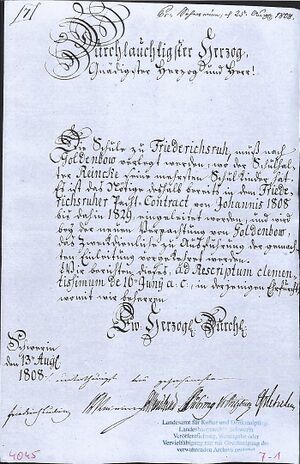 [7]
Schwerin, d 25. Aug. 1808.
Durchlauchtigster Herzog,
Gnädigster Herzog und Herr!
Die Schule zu Friederichsruh, muß nach
Goldenbow verlegt werden, wo der Schulhal-
ter Reincke seine mehrsten Schulkinder hat.
Es ist das Nötige deshalb bereits in dem Friede-
richsruher Pacht-Contract von Johannis 1808
bis dahin 1829, eingeleitet worden, und wird
bey der neuen Verpachtung von Goldenbow,
das Zweckdienliche zu Ausführung der gemach-
ten Einleitung vorgekehret werden.
Wir berichten dieses, ad Rescriptum clemen-
tissimum de 10 Juny a. c., in derjenigen Ehrfurcht
womit wir beharren
Ew. Herzogl. Durchl.
Schwerin
den 13 Aug.
1808.
unterthänigst treu gehorsamste
Landesamt für Kultur und Denkmalpflege
Landeshauptarchiv Schwerin
Veröffentlichung, Weitergabe oder
Vervielfältigung nur mit Genehmigung des
verwahrenden Archivs gestattet
4045
7-1